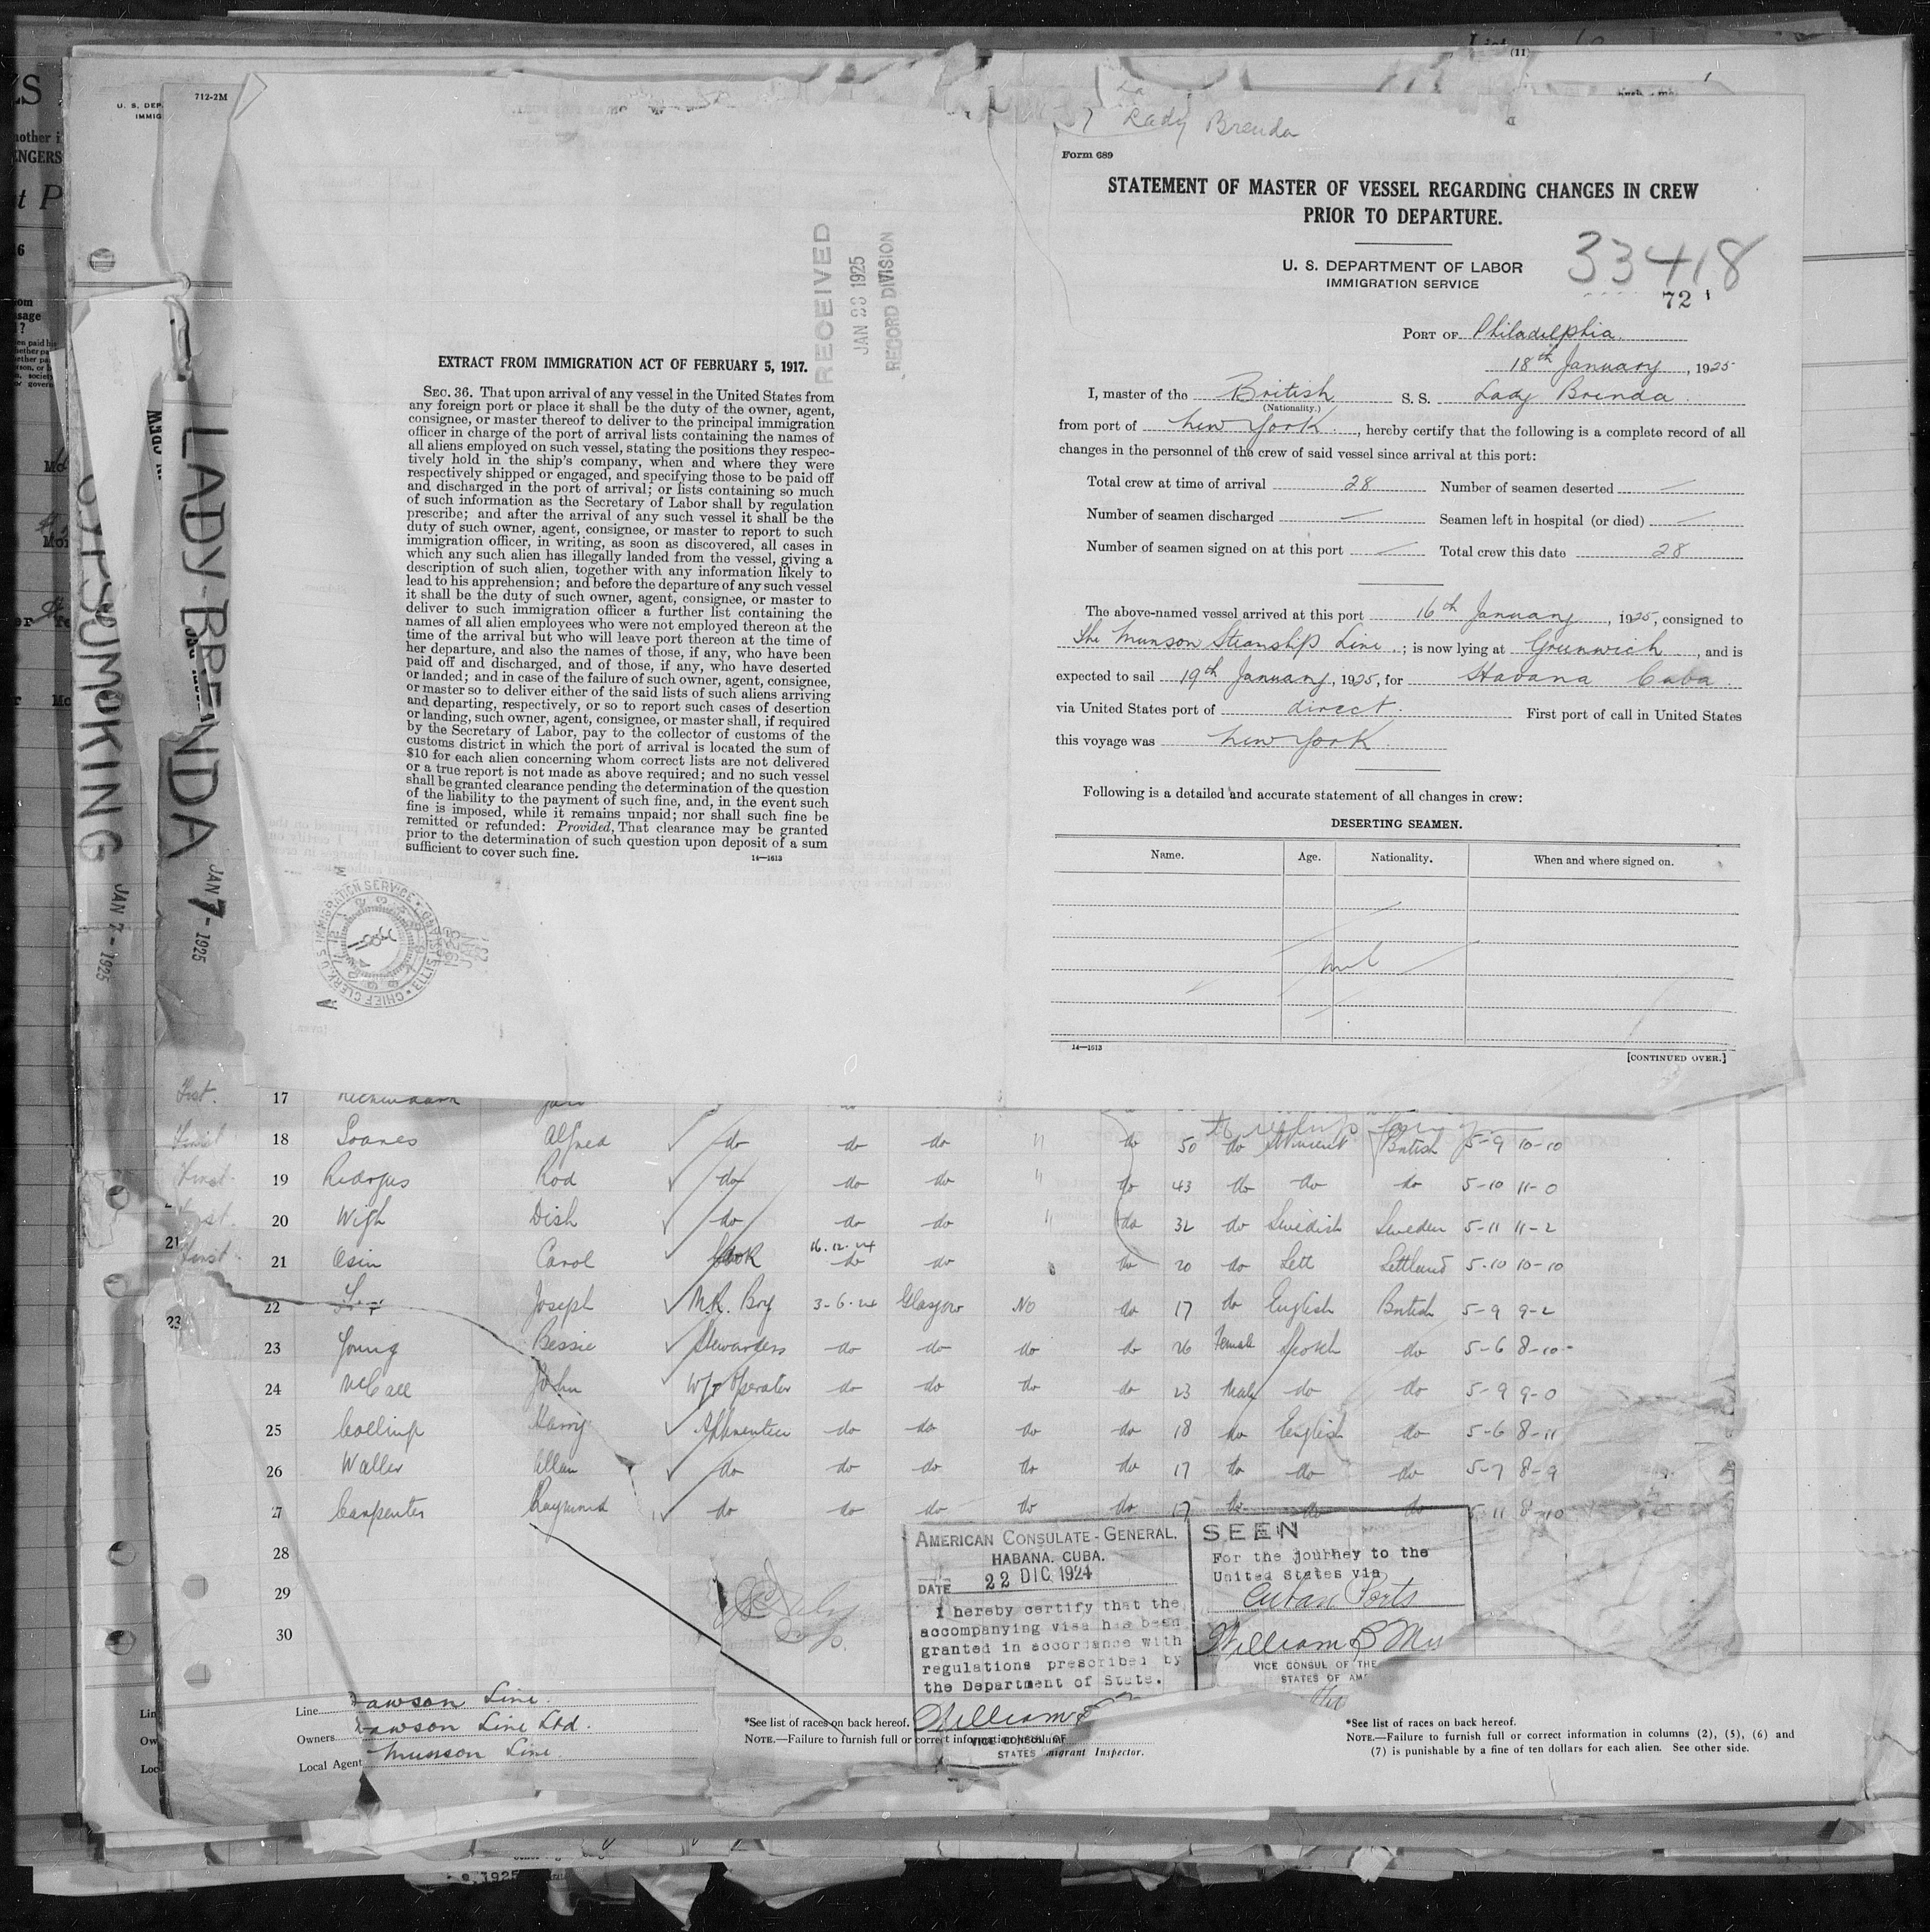 712-2M
U. S. DEP
IMMIG
LADY-BRENDA
JAN 7 - 1925
JAN 7 - 1925
RECEIVED
JAN 23 1925
RECORD DIVISION
EXTRACT FROM IMMIGRATION ACT OF FEBRUARY 5, 1917.
SEC. 36. That upon arrival of any vessel in the United States from
any foreign port or place it shall be the duty of the owner, agent,
consignee, or master thereof to deliver to the principal immigration
officer in charge of the port of arrival lists containing the names of
all aliens employed on such vessel, stating the positions they respec-
tively hold in the ship's company, when and where they were
respectively shipped or engaged, and specifying those to be paid off
and discharged in the port of arrival; or lists containing so much
of such information as the Secretary of Labor shall by regulation
prescribe; and after the arrival of any such vessel it shall be the
duty of such owner, agent, consignee, or master to report to such
immigration officer, in writing, as soon as discovered, all cases in
which any such alien has illegally landed from the vessel, giving a
description of such alien, together with any information likely to
lead to his apprehension; and before the departure of any such vessel
it shall be the duty of such owner, agent, consignee, or master to
deliver to such immigration officer a further list containing the
names of all alien employees who were not employed thereon at the
time of the arrival but who will leave port thereon at the time of
her departure, and also the names of those, if any, who have been
paid off and discharged, and of those, if any, who have deserted
or landed; and in case of the failure of such owner, agent, consignee,
or master so to deliver either of the said lists of such aliens arriving
and departing, respectively, or so to report such cases of desertion
or landing, such owner, agent, consignee, or master shall, if required
by the Secretary of Labor, pay to the collector of customs of the
customs district in which the port of arrival is located the sum of
$10 for each alien concerning whom correct lists are not delivered
or a true report is not made as above required; and no such vessel
shall be granted clearance pending the determination of the question
of the liability to the payment of such fine, and, in the event such
fine is imposed, while it remains unpaid; nor shall such fine be
remitted or refunded: Provided, That clearance may be granted
prior to the determination of such question upon deposit of a sum
sufficient to cover such fine.
14—1613
Lady Brenda
Form 689
STATEMENT OF MASTER OF VESSEL REGARDING CHANGES IN CREW
PRIOR TO DEPARTURE.
U. S. DEPARTMENT OF LABOR
IMMIGRATION SERVICE
33418
72
PORT OF Philadelphia
18th January, 1925
I, master of the British S. S. Lady Brenda
(Nationality.)
from port of New York, hereby certify that the following is a complete record of all
changes in the personnel of the crew of said vessel since arrival at this port:
Total crew at time of arrival 28 Number of seamen deserted —
Number of seamen discharged — Seamen left in hospital (or died) —
Number of seamen signed on at this port — Total crew this date 28
The above-named vessel arrived at this port 16th January, 1925, consigned to
The Munson Steamship Line; is now lying at Greenwich, and is
expected to sail 19th January, 1925, for Havana Cuba
via United States port of direct. First port of call in United States
this voyage was New York
Following is a detailed and accurate statement of all changes in crew:
DESERTING SEAMEN.
Name. Age. Nationality. When and where signed on.
nil
14—1613
[CONTINUED OVER.]
17
18 Soanes Alfred do do do " do 50 do St Vincent British 5-9 10-10
19 Rod do do do " do 43 do do do 5-10 11-0
20 Wigh Dish do do do " do 32 do Swedish Sweden 5-11 11-2
21 Osin Carol Cook 16.12.24 do do do 20 do Lett Lettland 5-10 10-10
22 Joseph M.R. Boy 3-6-24 Glasgow No do 17 do English British 5-9 9-2
23 Young Bessie Stewardess do do do do 26 Female Scotch do 5-6 8-10
24 McCall John W/T Operator do do do do 23 Male do do 5-9 9-0
25 Collings Harry Apprentice do do do do 18 do English do 5-6 8-11
26 Waller Allan do do do do do 17 do do do 5-7 8-9
27 Carpenter Raymond do do do do do 17 do do do 5-11 8-10
28
29
30
AMERICAN CONSULATE-GENERAL.
HABANA. CUBA.
DATE 22 DIC 1924
I hereby certify that the
accompanying visa has been
granted in accordance with
regulations prescribed by
the Department of State.
William
VICE CONSUL OF
STATES
SEEN
For the journey to the
United States via
Cuban Ports
William B Mu
VICE CONSUL OF THE
STATES OF AM
Line Dawson Line.
Owners Dawson Line Ltd.
Local Agent Munson Line.
*See list of races on back hereof.
NOTE.—Failure to furnish full or correct information in columns
migrant Inspector.
*See list of races on back hereof.
NOTE.—Failure to furnish full or correct information in columns (2), (5), (6) and
(7) is punishable by a fine of ten dollars for each alien. See other side.